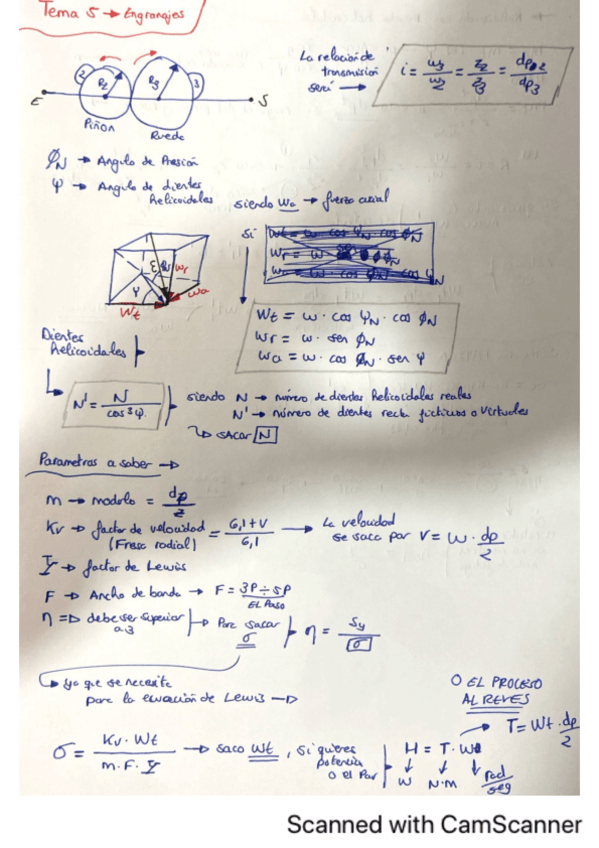 Tema 5 → Engranajes
2 R2 R3 3
E S
Piñon Rueda
La relacion de transmision será → i = ω3/ω2 = Z2/Z3 = dp2/dp3
ϕN → Angulo de Presion
ψ → Angulo de dientes helicoidales
siendo Wa → fuerza axial
Si
Wt = W · cos ψN · cos ϕN
Wr = W · sen ϕN
Wa = W · cos ϕN · sen ψ
Wr
ψ
Wa
Wt
Dientes helicoidales
N' = N / cos³ψ
siendo N → número de dientes helicoidales reales
N' → número de dientes recta ficticios o virtuales
↳ SACAR N
Parametros a saber →
m → modulo = dp/z
Kv → factor de velocidad (Fresa radial) = 6,1+V / 6,1 → La velocidad se saca por V = ω · dp/2
Y → factor de Lewis
F → Ancho de banda → F = 3P ÷ 5P
EL PASO
η => debe ser superior a 3 → Para sacar σ η = Sy/σ
↳ ya que se necesita para la ecuación de Lewis →
O EL PROCESO AL REVES
σ = Kv · Wt / m · F · Y → saco Wt, si quieres potencia o el Par
H = T · ω → T = Wt · dp/2
W N·M rad/seg
Scanned with CamScanner